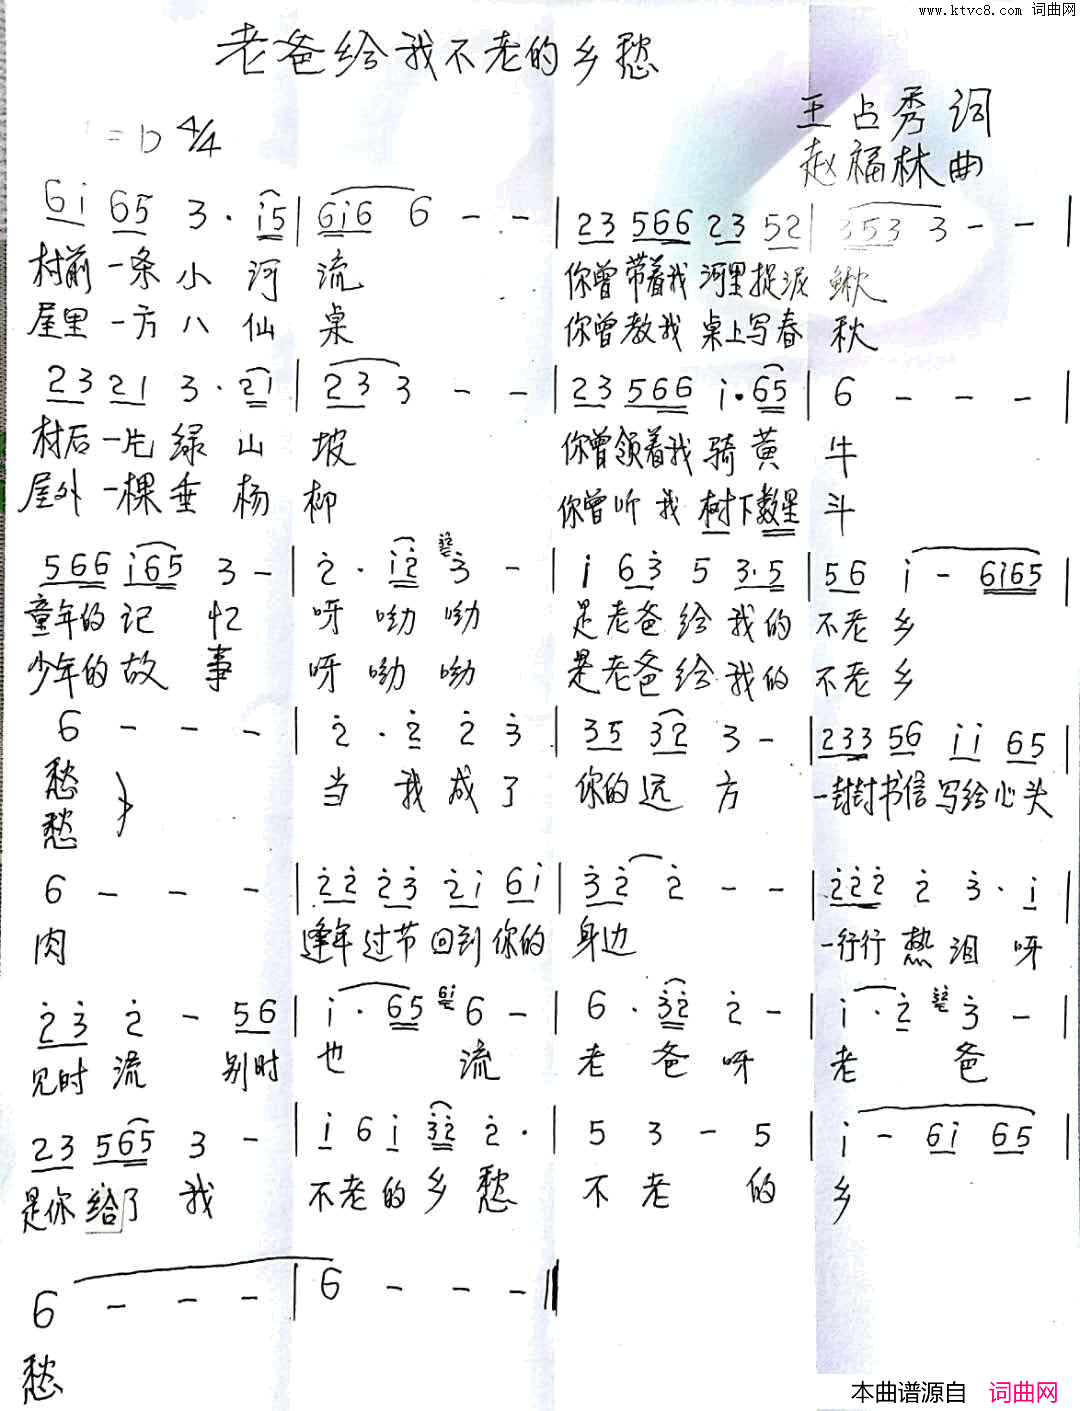 www.ktvc8.com 词曲网
老爸给我不老的乡愁
王占秀词
1=D 4/4
赵福林曲
6i 65 3· i5 | 6i6 6 - - | 23 566 23 52 | 353 3 - - |
村前一条小河流 你曾带着我河里捉泥鳅
屋里一方八仙桌 你曾教我桌上写春秋
23 21 3· 2i | 23 3 - - | 23 566 i· 65 | 6 - - - |
村后一片绿山坡 你曾领着我骑黄牛
屋外一棵垂杨柳 你曾听我树下数星斗
566 i65 3 - | 2· i2 3 - | i 63 5 3·5 | 56 i - 6i65 |
童年的记忆 呀呦呦 是老爸给我的不老乡
少年的故事 呀呦呦 是老爸给我的不老乡
6 - - - | 2· 2 2 3 | 35 32 3 - | 233 56 ii 65 |
愁 当我成了你的远方 一封封书信写给心头
愁
6 - - - | 22 23 2i 6i | 32 2 - - | 222 2 3· i |
肉 逢年过节回到你的身边 一行行热泪呀
23 2 - 56 | i· 65 6i 6 - | 6· 32 2 - | i· 2 3 - |
见时流 别时也流 老爸呀老爸
23 565 3 - | i 6 i 32 2· | 5 3 - 5 | i - 6i 65 |
是你给了我 不老的乡愁 不老的乡
6 - - - | 6 - - - ‖
愁
本曲谱源自 词曲网